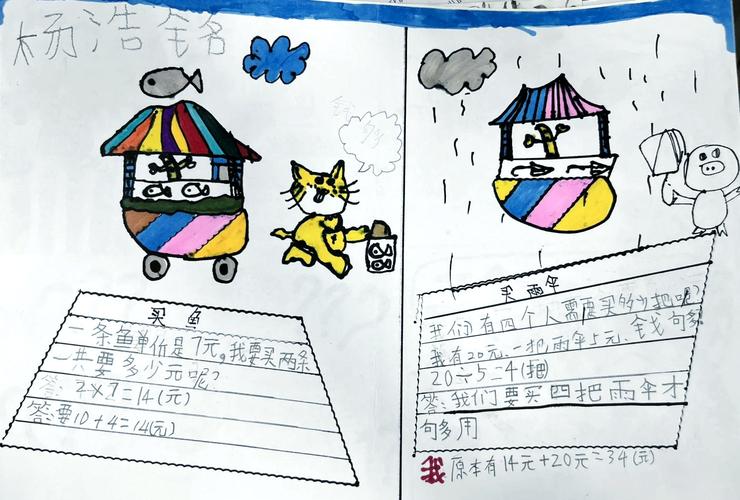 杨浩铭
买鱼
一条鱼单份是7元。我要买两条
一共要多少元呢?
答:2×7=14(元)
答:要10+4=14(元)
买雨伞
我们有四个人需要买多少把呢?
我有20元、一把雨伞5元、钱句多
20÷5=4(把)
答:我们要买四把雨伞才
句多用
我原本有14元+20元=34(元)